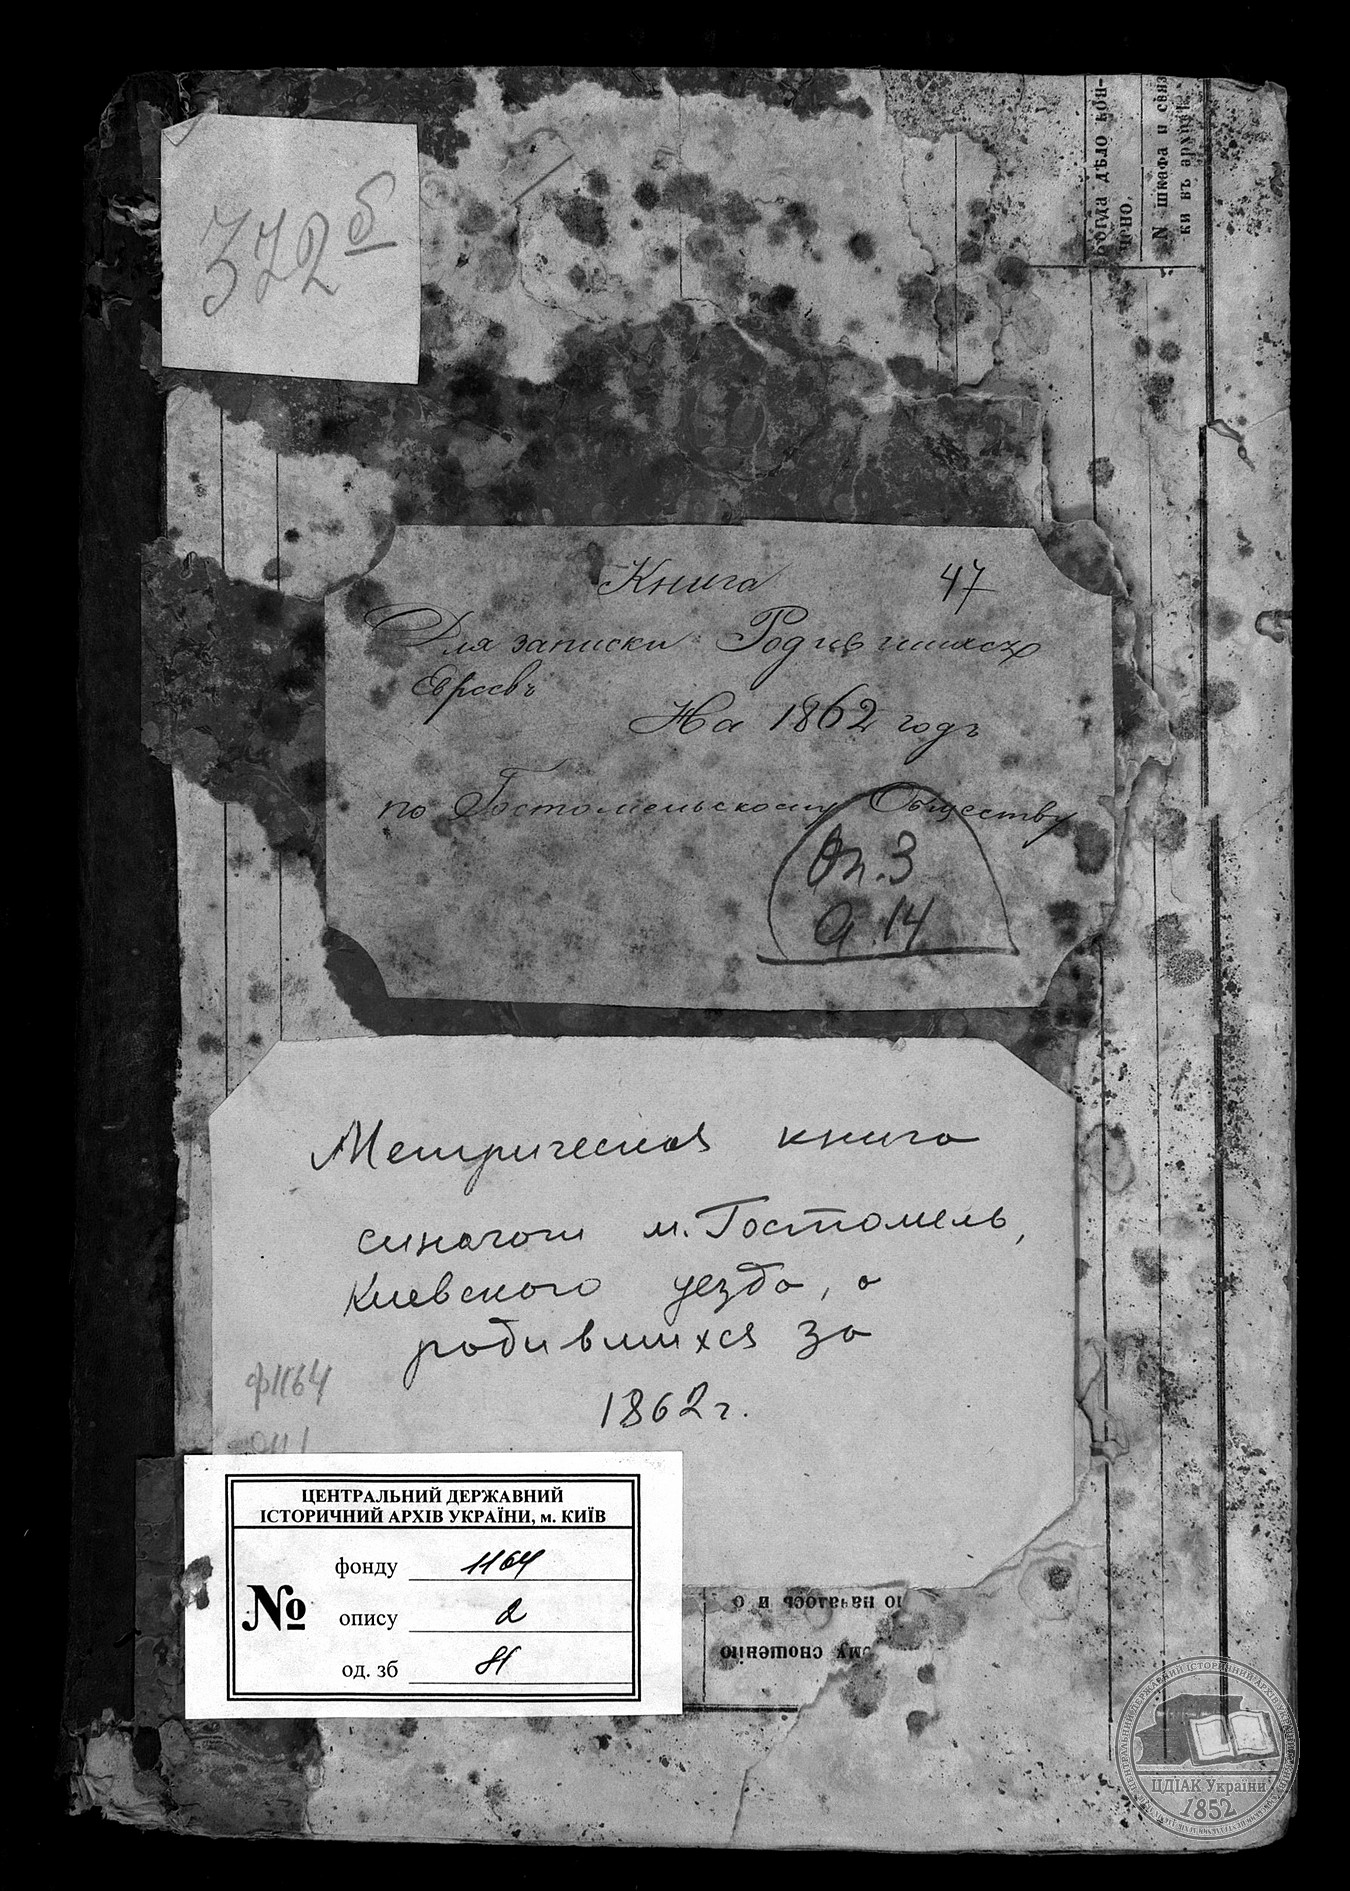 372 б
когда дѣло кон-
чено,
N шкафа и связ
ки въ архивѣ.
Книга 47
Для записки Родившихся
Евреевъ
На 1862 годъ
по Гостомельскому Обществу
Оп. 3
д. 14
Метрическая книга
синагоги м. Гостомель,
Киевского уезда, о
родившихся за
1862 г.
ф 1164
оп 1
ЦЕНТРАЛЬНИЙ ДЕРЖАВНИЙ
ІСТОРИЧНИЙ АРХІВ УКРАЇНИ, м. КИЇВ
№
фонду 1164
опису 2
од. зб 81
ому сношенію
ло началось и о
ЦДІАК України
1852